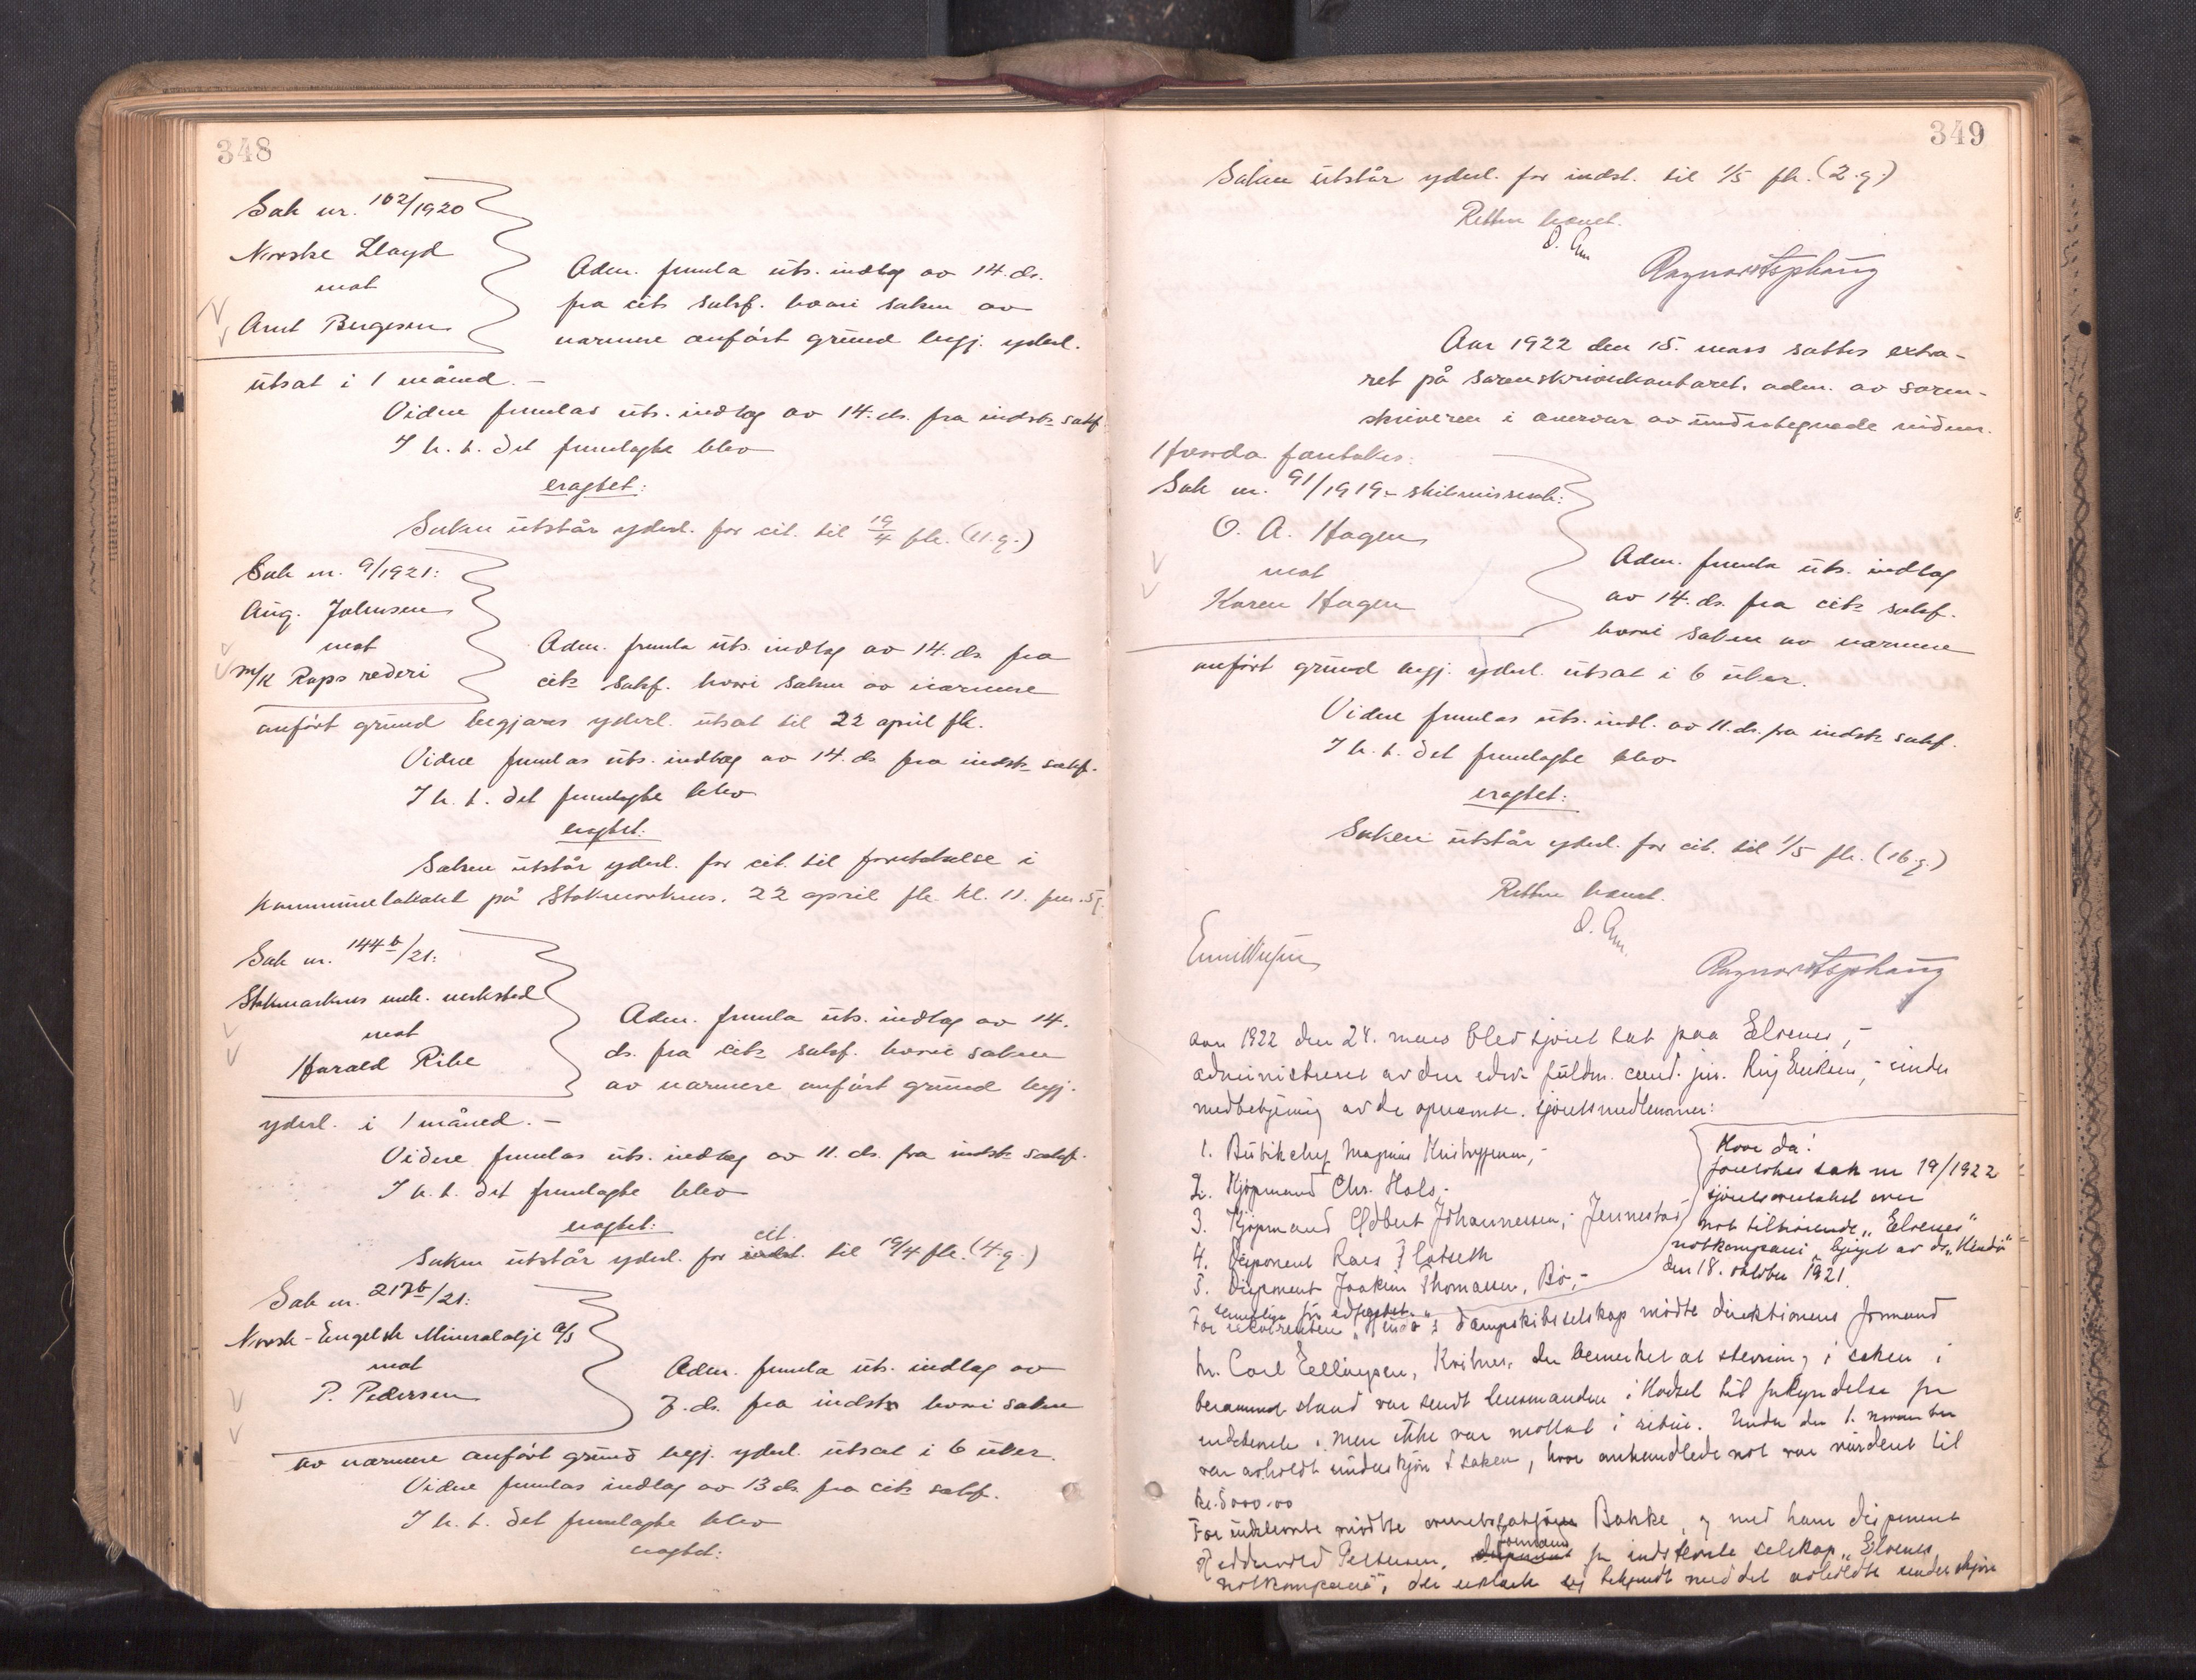 348
Sak nr. 102/1920
Norske Lloyd
mot
Arnt Bergesen
Adm. fremla uts. indlæg av 14. ds.
fra cits sakf. hvori saken av
nærmere anført grund begj. yderl.
utsat i 1 måned. –
Videre fremlas uts. indlæg av 14. ds. fra indsts sakf.
I h. t. det fremlagte blev
eragtet:
Saken utstår yderl. for cit. til 19/4 fk. (11. g.)
Sak nr. 9/1921:
Aug. Johnsen
mot
m/k Raps rederi
Adm. fremla uts. indlæg av 14. ds. fra
cits sakf. hvori saken av nærmere
anført grund begjæres yderl. utsat til 22 april fk.
Videre fremlas uts. indlæg av 14. ds. fra indsts sakf.
I h. t. det fremlagte blev
eragtet:
Saken utstår yderl. for cit. til foretakelse i
kommunelokalet på Stokmarknes, 22 april fk. kl. 11. fm. 5 g.
Sak nr. 144 b/21:
Stokmarknes mek. verksted
mot
Harald Ribe
Adm. fremla uts. indlæg av 14.
ds. fra cits sakf. hvori saken
av nærmere anført grund begj.
yderl. i 1 måned. –
Videre fremlas uts. indlæg av 11. ds. fra indsts sakf.
I h. t. det fremlagte blev
eragtet:
cit.
Saken utstår yderl. for indst. til 19/4 fk. (4. g.)
Sak nr. 217 b/21:
Norsk-Engelsk Mineralolje a/s
mot
P. Pedersen
Adm. fremla uts. indlæg av
7. ds. fra indsts hvori saken
av nærmere anført grund begj. yderl. utsat i 6 uker.
Videre fremlas indlæg av 13 ds. fra cits sakf.
I h. t. det fremlagte blev
eragtet:
349
Saken utstår yderl. for indst. til 1/5 fk. (2. g.)
Retten hævet.
Aar 1922 den 15. mars sattes extra-
ret på sorenskriverkontoret, adm. av soren-
skriveren i overvær av undertegnede vidner.
Hvorda foretokes:
Sak nr. 91/1919 – skilsmissesak:
O. A. Hagen
mot
Karen Hagen
Adm. fremla uts. indlæg
av 14. ds. fra cits sakf.
hvori saken av nærmere
anført grund begj. yderl. utsat i 6 uker.
Videre fremlas uts. indl. av 11. ds. fra indsts sakf.
I h. t. det fremlagte blev
eragtet:
Saken utstår yderl. for cit. til 1/5 fk. (16. g.)
Retten hævet.
Aar 1922 den 24. mars blev sjøret sat paa Elvenes, –
administreret av den edsv. fuldm. cand. jur. Eriksen, – under
medbetjening av de opnævnte sjøretsmedlemmer:
1. Butikchef Magnus Kristoffersen, –
2. Kjøpmand Chr. Hals, –
3. Kjøpmand Johannessen, – Jennestad
4. Disponent
5. Disponent Joakim Thomassen, Bø, –
Hvor da!
foretokes sak nr 19/1922
sjøretsoverskjøn over
not tilhørende "Elvenes"
notkompani, av ds. "Hindø"
den 18. oktober 1921.
For rekvirenten dampskibsselskap møtte direktionens formand
hr. Carl Ellingsen, der bemerket at stevning i saken i
berammet stand var sendt lensmanden i Hadsel til forkyndelse for
indstevnte, men ikke var mottat i retur. Under den 1. november
var avholdt underskjøn i saken, hvor omhandlede not var vurderet til
kr. 5000.00
For indstevnte møtte Bakke, og med ham disponent
formand
Pettersen, disponent for indstevnte selskap "Elvenes
notkompani", der erklærte sig bekjendt med det avholdte underskjøn